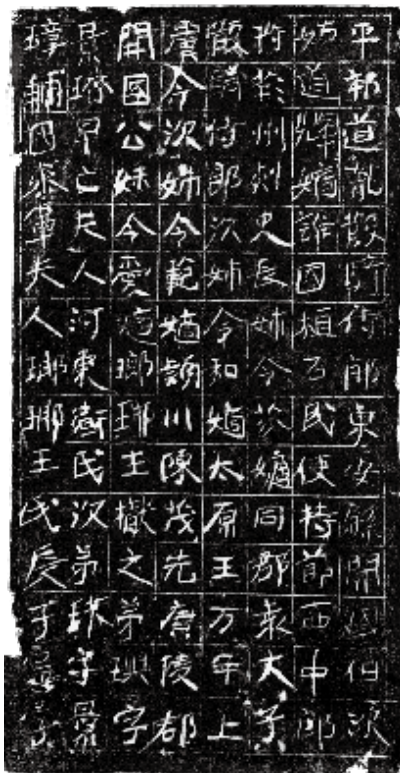 平郡道胤散騎侍郎東安縣開國伯次
姑道輝嫡譙國桓石民使持節西中郎
將荊州刺史長姊令芬嫡同郡袁大子
散騎侍郎次姊令和嫡太原王万年上
虞令次姊令範嫡潁川陳茂先廣陵郡
開國公妹令愛嫡瑯琊王擻之弟璵字
景琳早亡夫人河東衛氏次弟球字景
璋輔國參軍夫人瑯琊王氏長子寧字